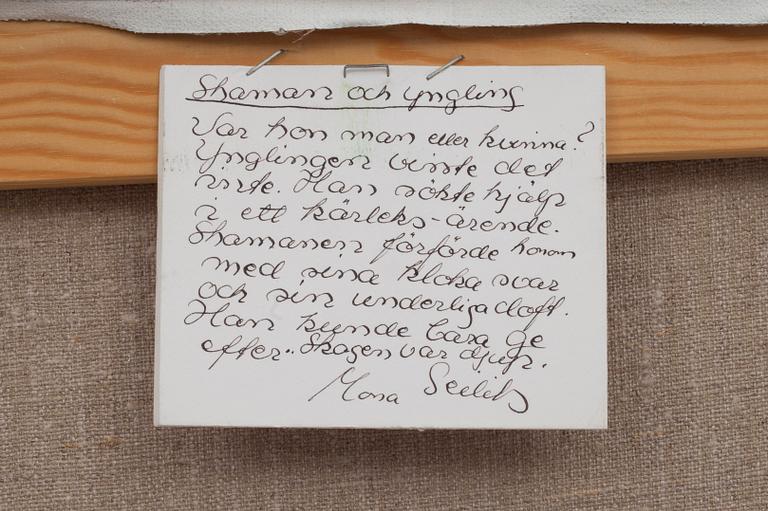 Shaman och yngling
Var hon man eller kvinna?
Ynglingen visste det
inte. Han sökte hjälp
i ett kärleks-ärende.
Shamanen förförde honom
med sina kloka svar
och sin underliga doft.
Han kunde bara ge
efter.. Skogen var djup.
Mona Seilitz